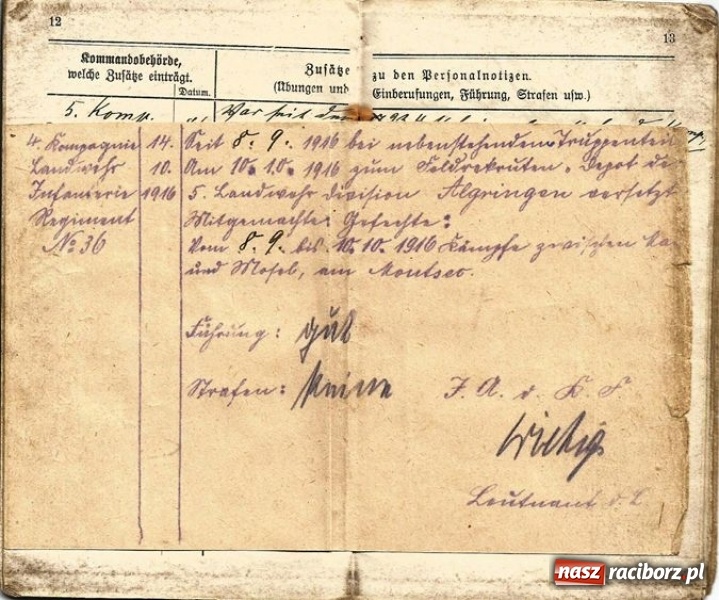 12
13
Kommandobehörde,
welche Zusätze einträgt.
Datum.
Zusätze zu den Personalnotizen.
(Übungen und Einberufungen, Führung, Strafen usw.)
5. Komp. War seit dem
4. Kompagnie 14. Seit 8. 9. 1916 bei nebenstehendem Truppenteil
Landwehr 10. Am 10. 10. 1916 zum Feldrekruten-Depot de
Infanterie 1916 5. Landwehr Division Algringen versetzt
Regiment Mitgemachte Gefechte:
No 36 Vom 8. 9. bis 10. 10. 1916 Kämpfe zwischen Ma
und Mosel, am Montsec.
Führung: gut
Strafen: Keine J. A. d. K. F
Leutnant d. L
nasz raciborz.pl